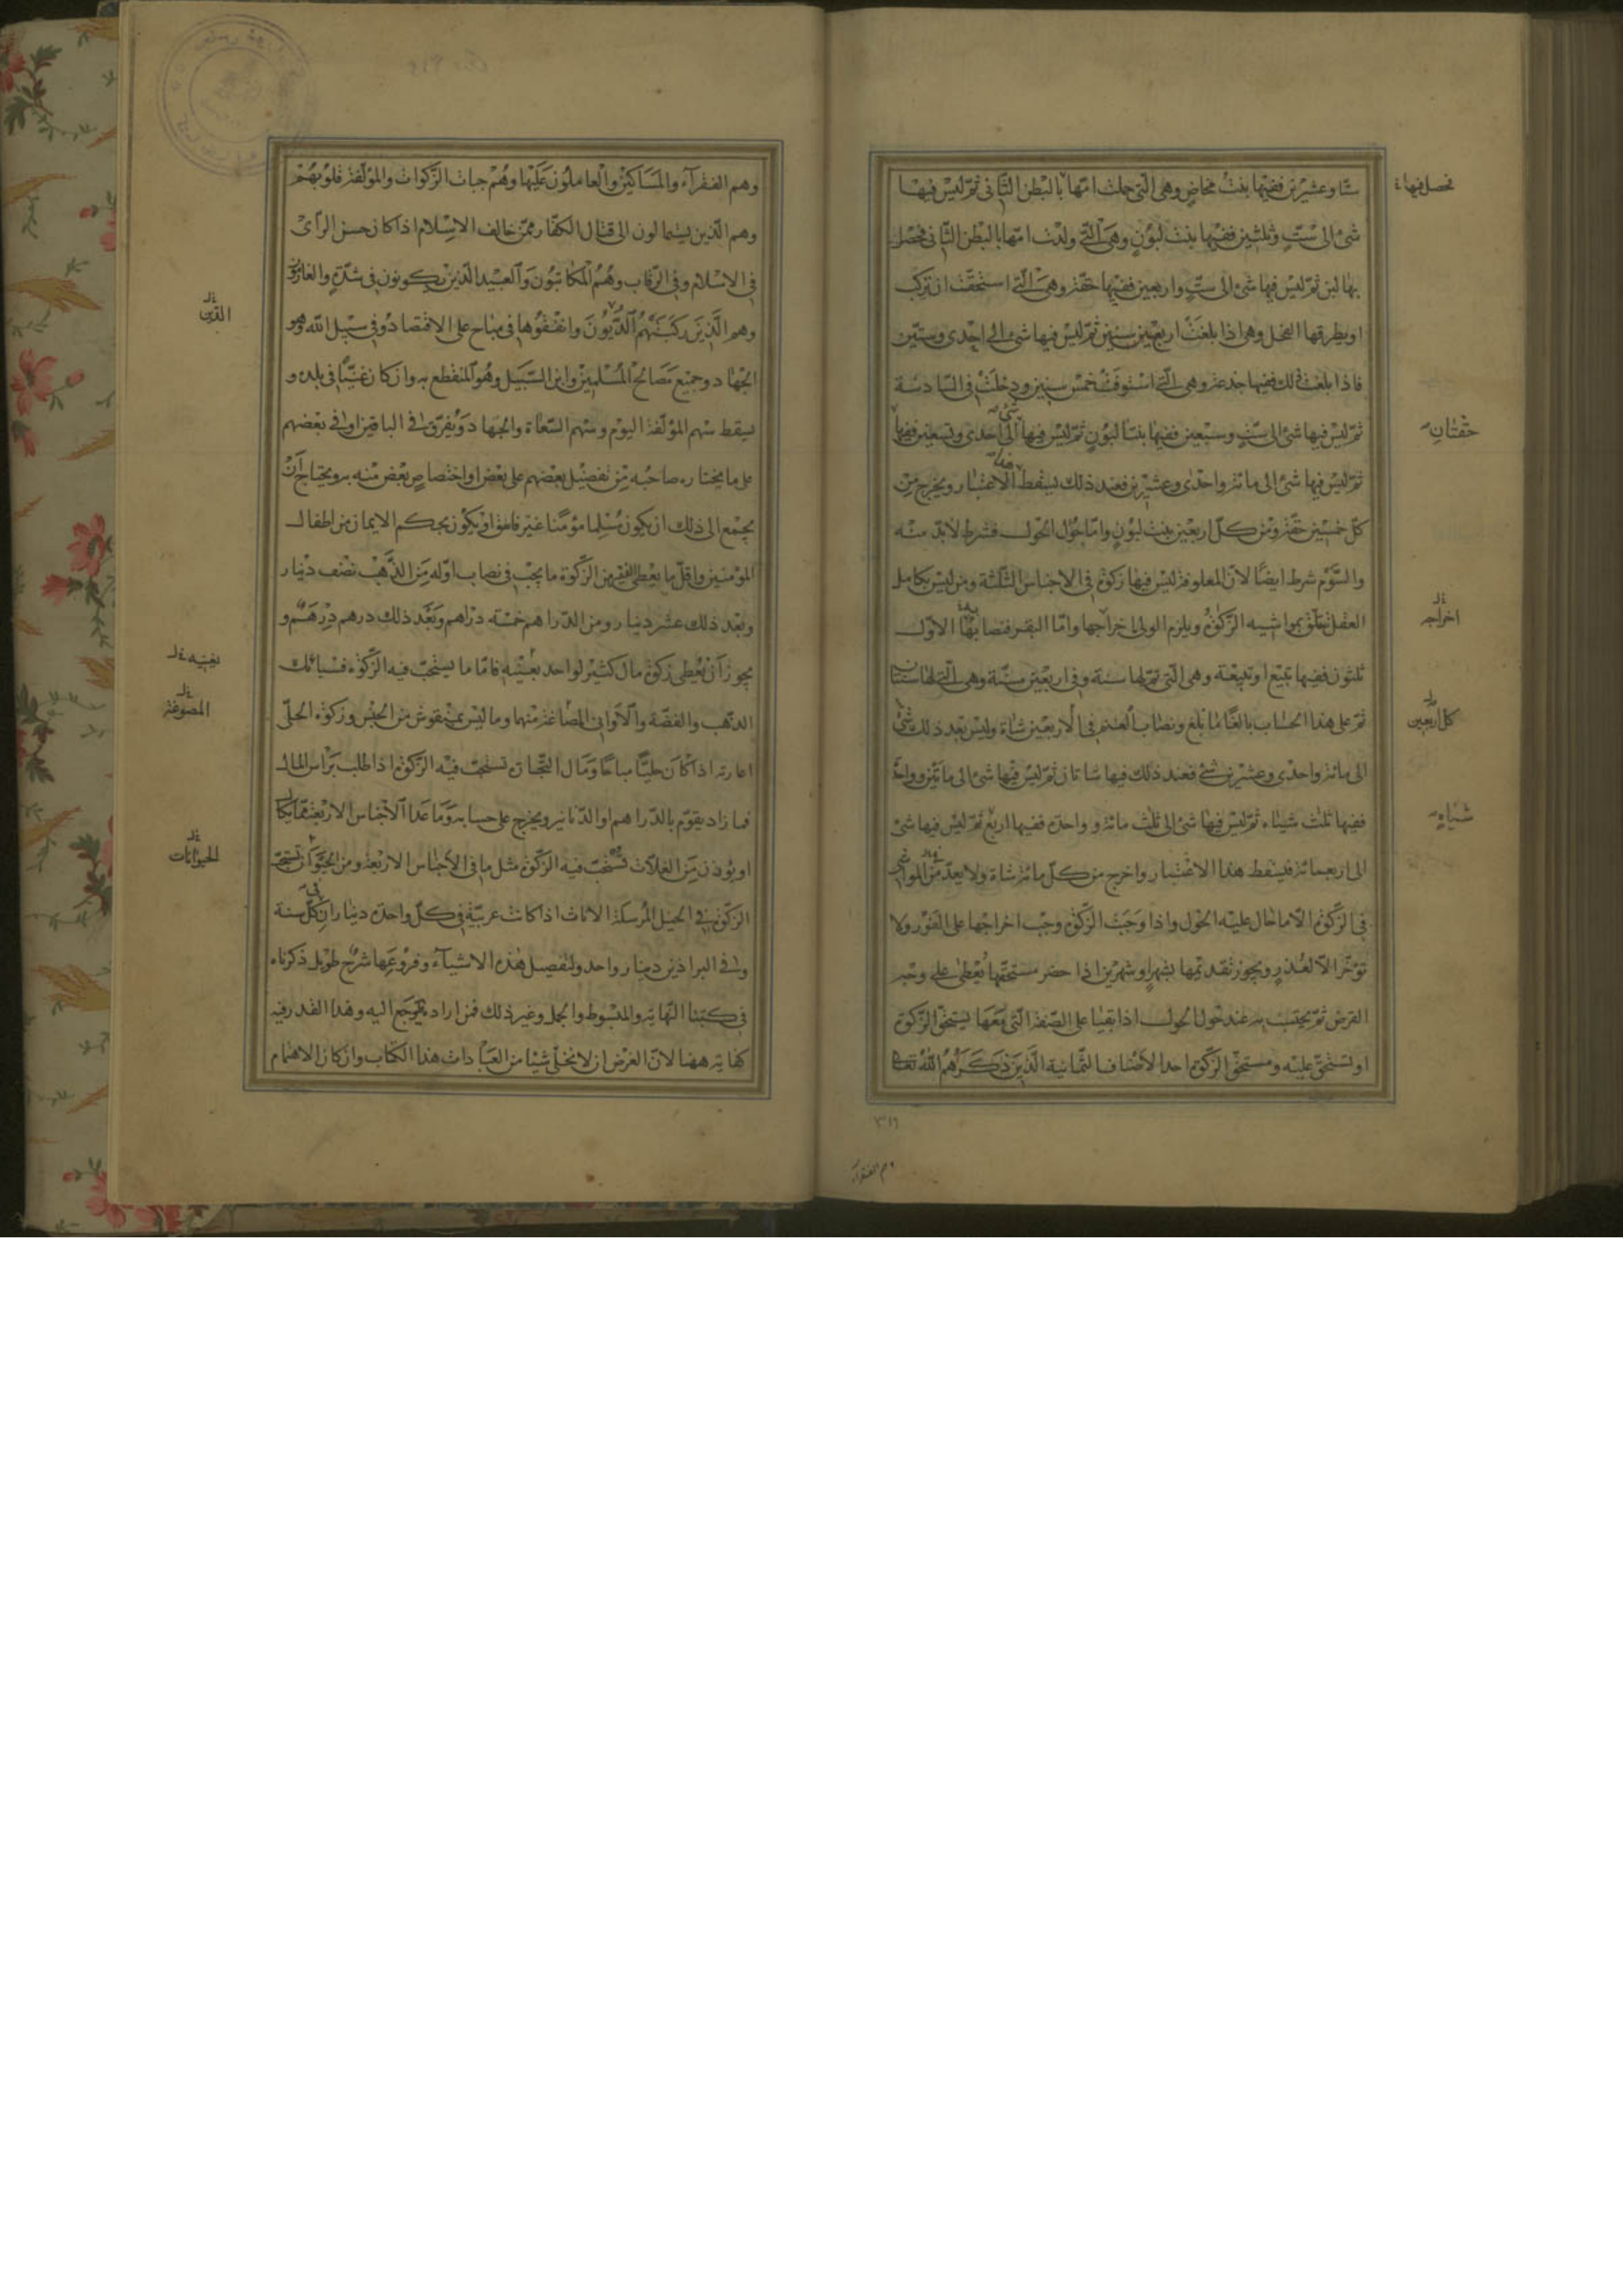 ستّا وعشرين ففيها بنت مخاض وهى الّتى حملت امّها بالبطن الثّانى ثمّ ليس فيها
شئ الى ستّ وثلثين ففيها بنت لبون وهى الّتى ولدت امّها بالبطن الثّانى فحصل
بها لبن ثمّ ليس فيها شئ الى ستّ واربعين ففيها حقّة وهى الّتى استحقّت ان تركب
او يطرقها الفحل وهى اذا بلغت اربع سنين ثمّ ليس فيها شئ الى احدى وستّين
فاذا بلغت ذلك ففيها جذعة وهى الّتى استوفت خمس سنين ودخلت فى السّادسة
ثمّ ليس فيها شئ الى ستّ وسبعين ففيها بنتا لبون ثمّ ليس فيها شئ الى احدى وتسعين ففيها
ثمّ ليس فيها شئ الى مائة واحدى وعشرين فعند ذلك يسقط هذا الاعتبار ويخرج من
كلّ خمسين حقّة ومن كلّ اربعين بنت لبون وامّا حؤل الحول فشرط لابدّ منه
والسّوم شرط ايضًا لانّ المعلوفة ليس فيها زكوة فى الاجناس الثّلثة ومن ليس بكامل
العقل تعلّق بمواشيه الزّكوة ويلزم الولى اخراجها وامّا البقر فنصابها الاوّل
ثلثون ففيها تبيع او تبيعة وهى الّتى تمّ لها سنة وفى اربعين مسنّة وهى الّتى لها سنتان
ثمّ على هذا الحساب بالغًا ما بلغ ونصاب الغنم فى الاربعين شاة وليس بعد ذلك شئ
الى مائة واحدى وعشرين شئ فعند ذلك فيها شاتان ثمّ ليس فيها شئ الى مائتين وواحدة
ففيها ثلث شياه ثمّ ليس فيها شئ الى ثلث مائة وواحدة ففيها اربع ثمّ ليس فيها شئ
الى اربعمائة فيسقط هذا الاعتبار واخرج من كلّ مائة شاة ولا يعدّ من المواشى
فى الزّكوة الّا ما حال عليه الحول واذا وجبت الزّكوة وجب اخراجها على الفور ولا
تؤخّر الّا لعذر ويجوز تقديمها بشهر او شهرين اذا حضر مستحقّها يعطى على وجه
القرض ثمّ يحتسب به عند حؤل الحول اذا بقيا على الصّفة الّتى معها يستحقّ الزّكوة
او تستحقّ عليه ومستحقّ الزّكوة احد الاصناف الثّمانية الّذين ذكرهم اللّه تعالى
فحصل فيها
حقّتان
اخراجه
كل اربعين
شياه
٣١٦
وهم الفقرآء
وهم الفقرآء والمساكين والعاملون عليها وهم جباة الزّكوات والمؤلّفة قلوبهم
وهم الّذين يستمالون الى قتال الكفّار ممّن خالف الاسلام اذا كان حسن الرأى
فى الاسلام وفى الرّقاب وهم المكاتبون والعبيد الّذين يكونون فى شدّة والغارمون
وهم الّذين ركبتهم الدّيون وانفقوها فى مباح على الاقتصاد وفى سبيل اللّه وهو
الجهاد وجميع مصالح المسلمين وابن السّبيل وهو المنقطع به وان كان غنيّا فى بلده و
يسقط سهم المؤلّفة اليوم وسهم السّعاة والجهاد ويفرّق فى الباقين او فى بعضهم
على ما يختاره صاحبه من تفضيل بعضهم على بعض او اختصاص بعض منه به ويحتاج ان
يجمع الى ذلك ان يكون مسلما مؤمنا غير فاسق او يكون بحكم الايمان من اطفال
المؤمنين واقلّ ما يعطى الفقير من الزّكوة ما يجب فى نصاب اوّله من الذّهب نصف دينار
وبعد ذلك عشر دينار ومن الدّراهم خمسة دراهم وبعد ذلك درهم درهم و
يجوز ان يعطى زكوة مال كثير لواحد بعينه فامّا ما يستحبّ فيه الزّكوة فسبائك
الذّهب والفضّة والاوانى المصاغة منهما وما ليس بمنقوش من الجنس وزكوة الحلىّ
اعارته اذا كان حليّا مباحًا ومال التّجارة تستحبّ فيه الزّكوة اذا طلب برأس المال
فما زاد يقوّم بالدّراهم او الدّنانير ويخرج على حسابه وما عدا الاجناس الاربعة ممّا يكال
او يوزن من الغلّات تستحبّ فيه الزّكوة مثل ما فى الاجناس الاربعة ومن الحيوان تستحبّ
الزّكوة فى الخيل المرسلة الاناث اذا كانت عربيّة فى كلّ واحدة ديناران فى كلّ سنة
وفى البراذين دينار واحد ولتفصيل هذه الاشيآء وفروعها شرح طويل ذكرناه
فى كتبنا النّهاية والمبسوط والجمل وغير ذلك فمن اراده يرجع اليه وهذا القدر فيه
كفاية ههنا لانّ الغرض ان لا نخلّى شيئا من العبادات هذا الكتاب وان كان الاهتمام
الدّين
بغيته
المصوغة
الحيوانات